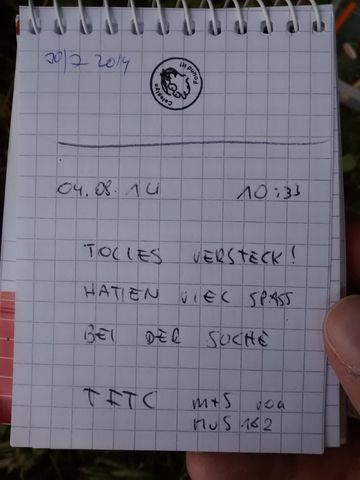 20/7 2014
Found it!
04.08.14 10:33
TOLLES VERSTECK!
HATTEN VIEL SPASS
BEI DER SUCHE
TFTC M+S von
MuS162